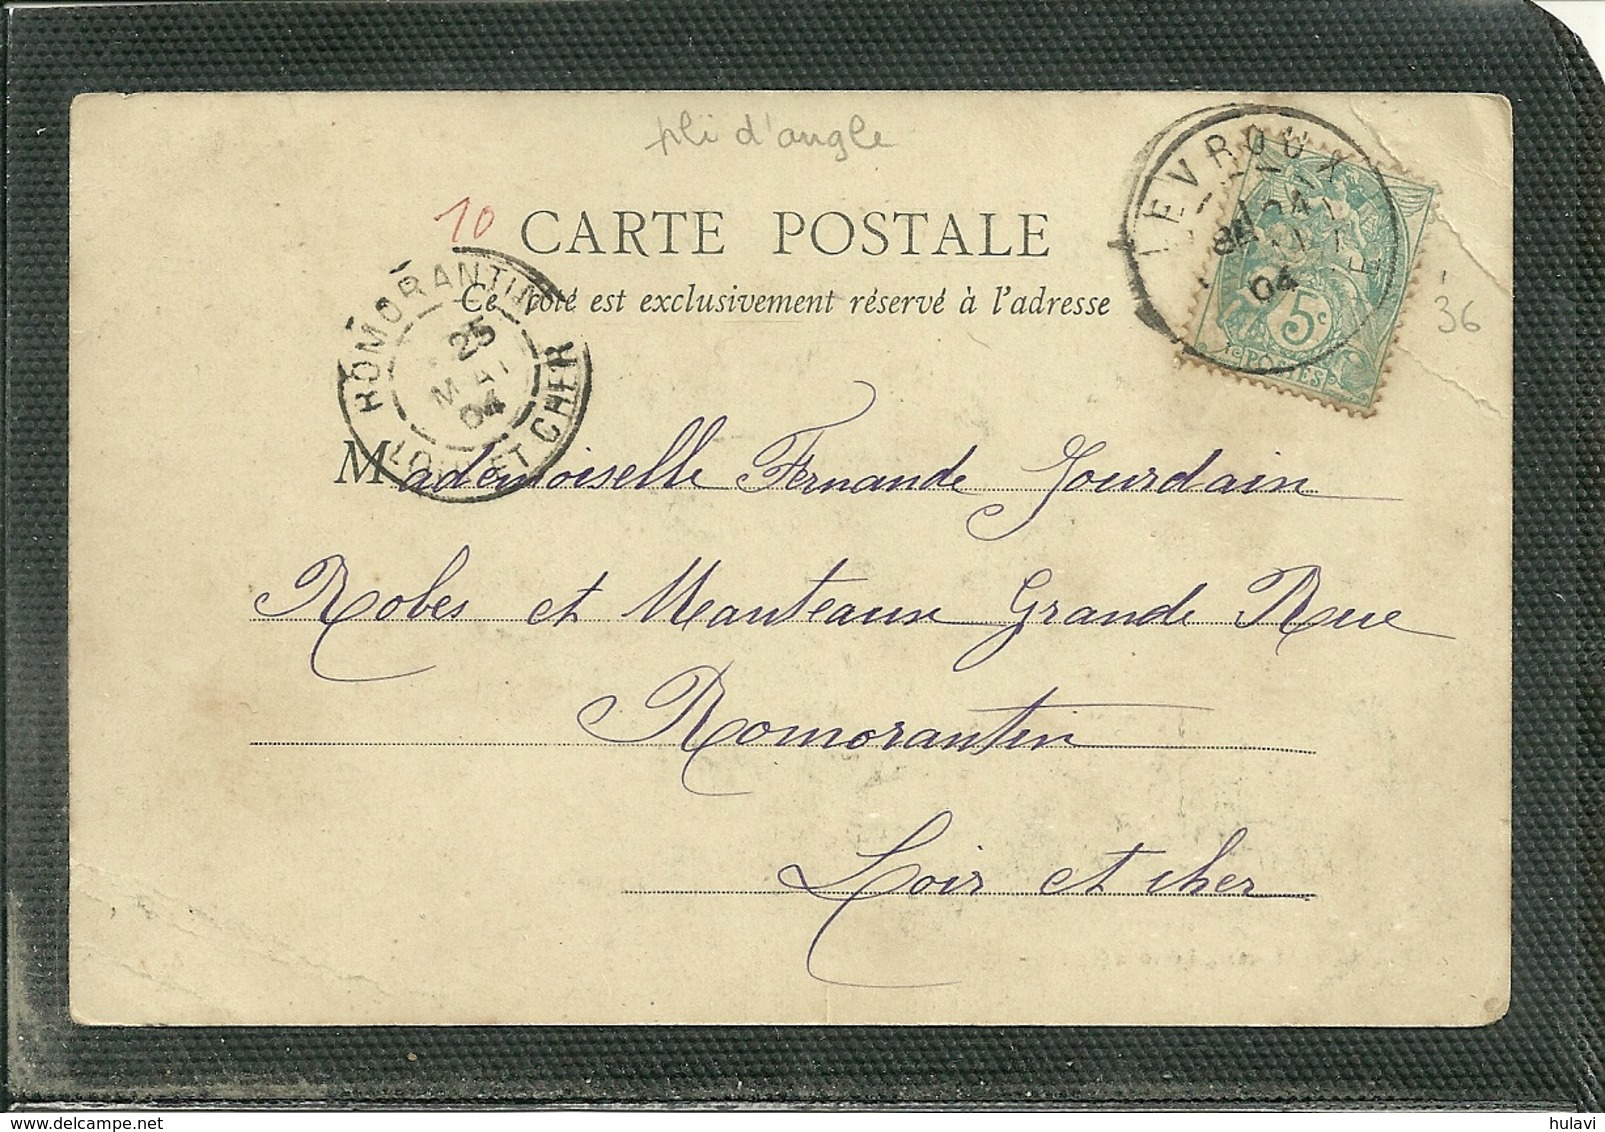 pli d'angle
10
CARTE POSTALE
Ce côté est exclusivement réservé à l'adresse
LEVROUX
24
04
5c
POSTES
36
ROMORANTIN
25
MAI
04
LOIR ET CHER
Mademoiselle Fernande Jourdain
Robes et Manteaux Grande Rue
Romorantin
Loir et cher
hulavi